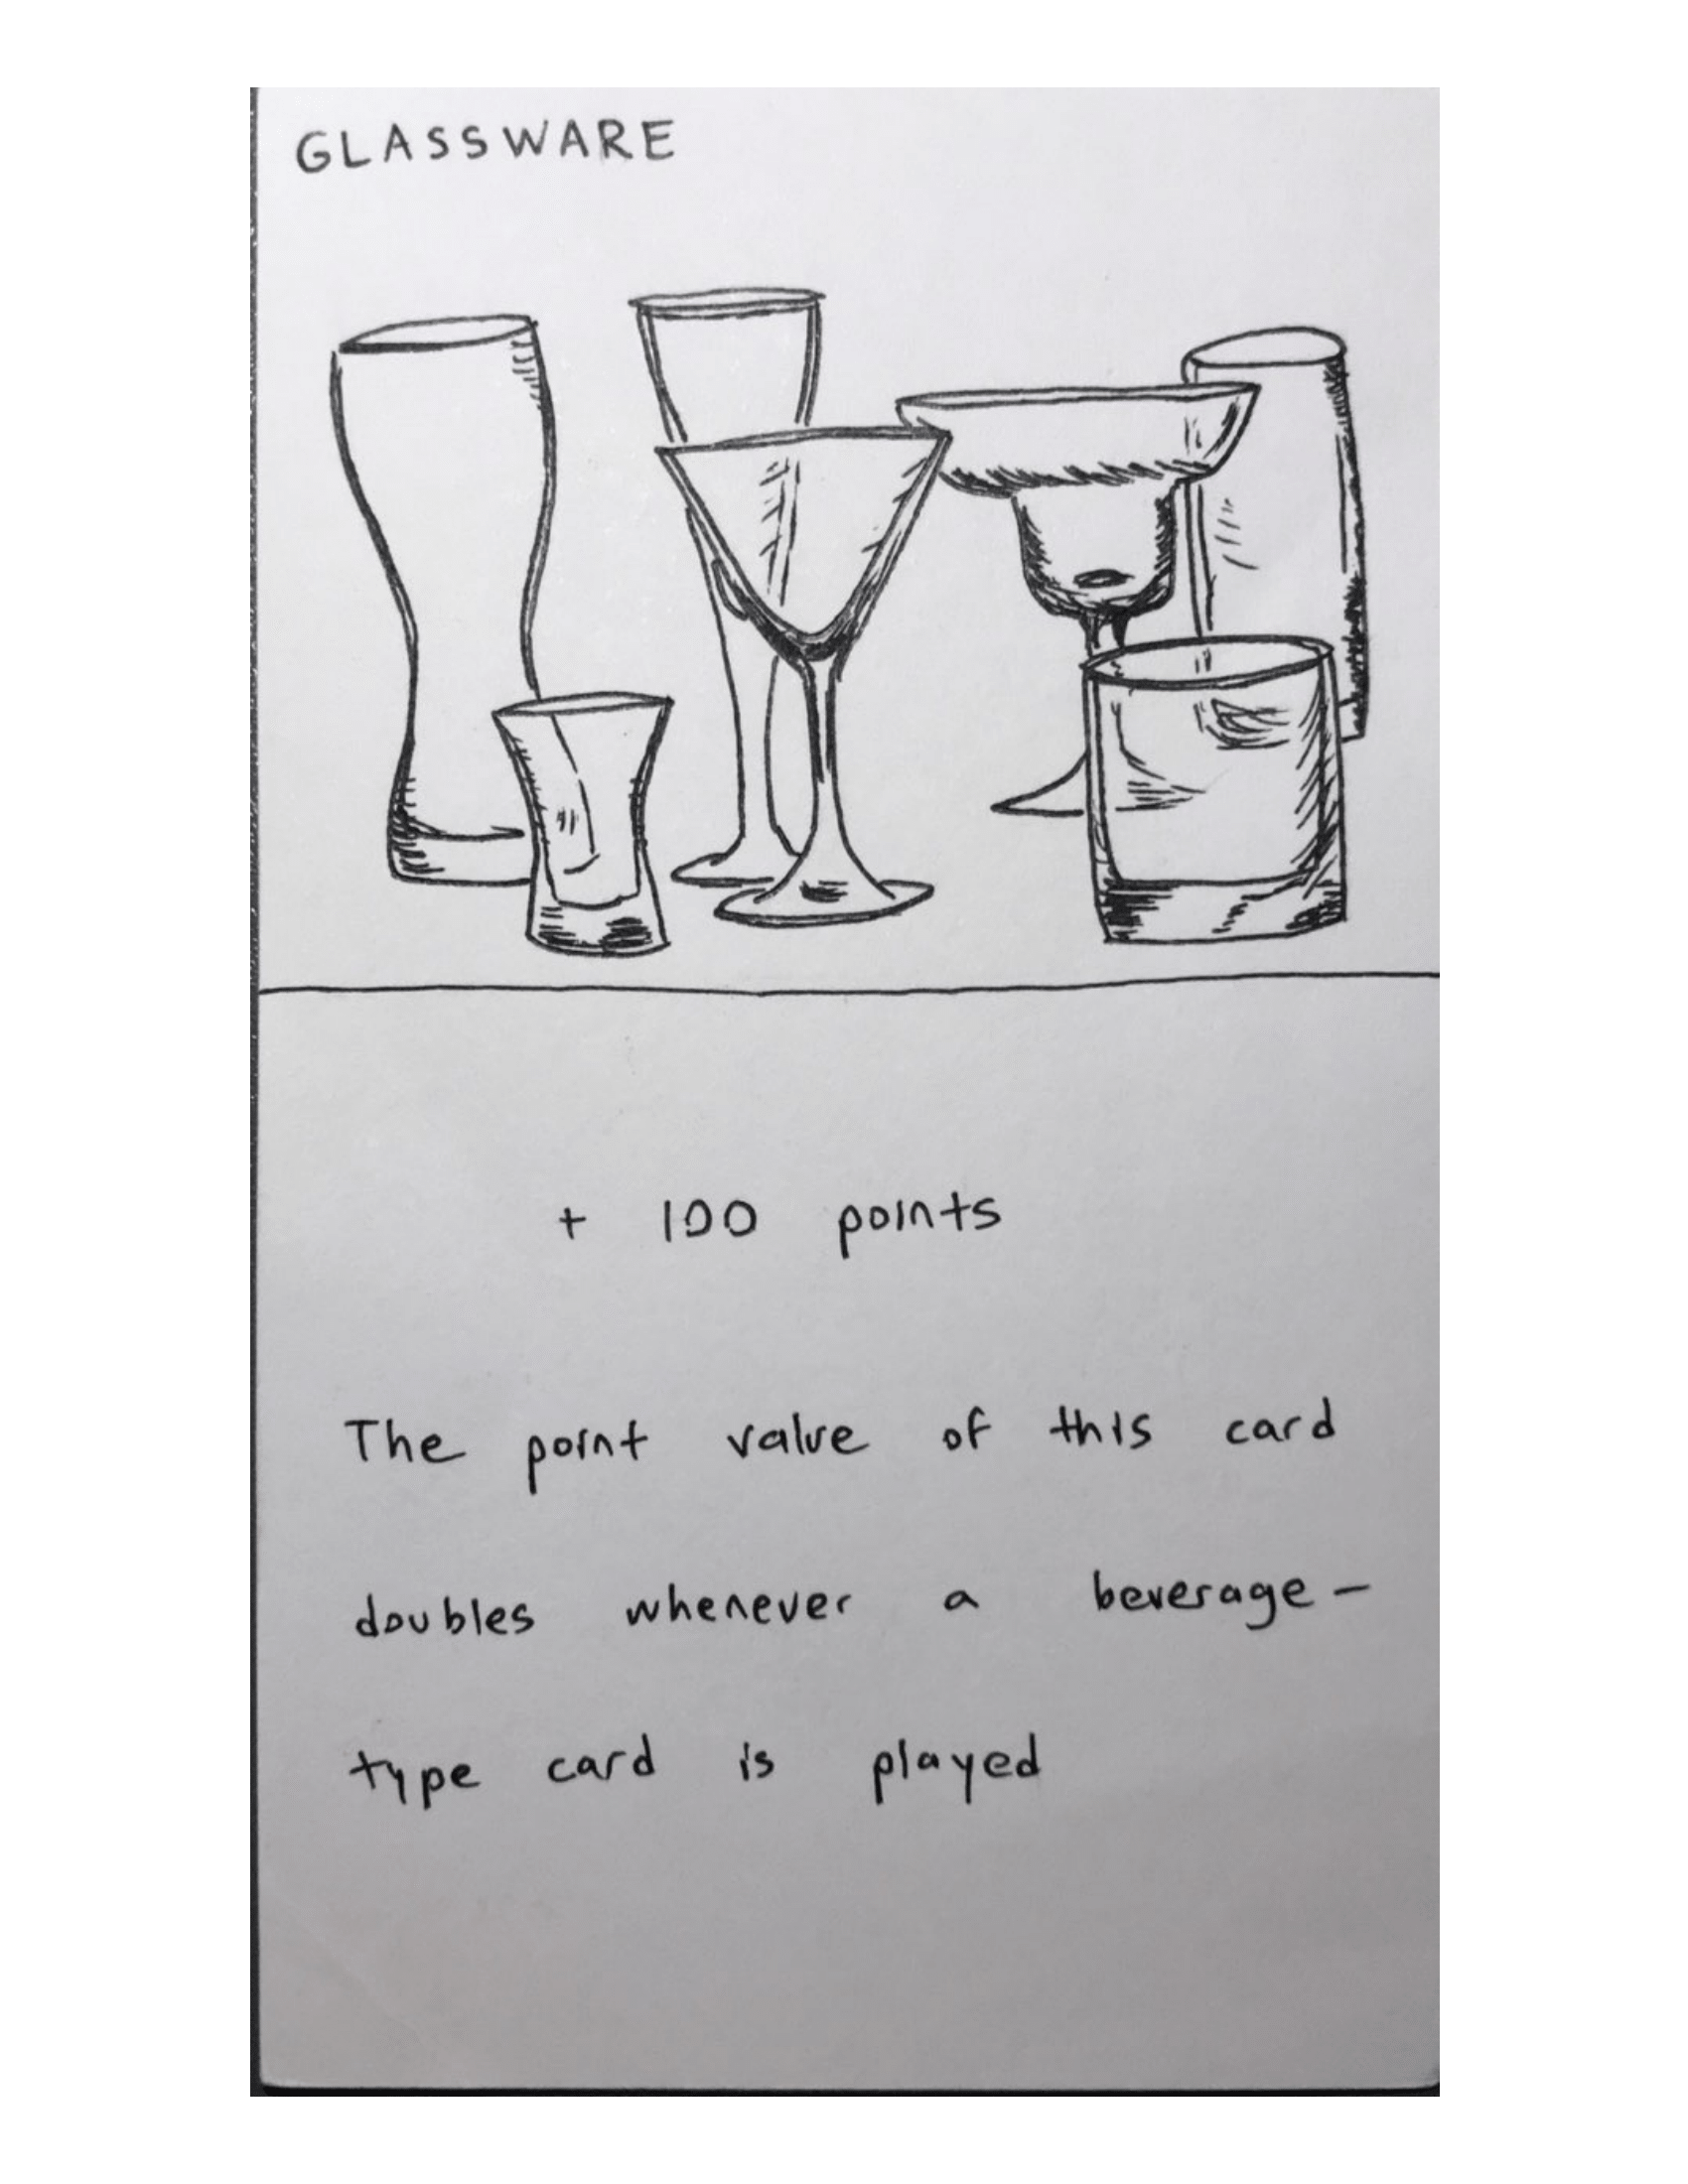 GLASSWARE
+ 100 points
The point value of this card
doubles whenever a beverage-
type card is played